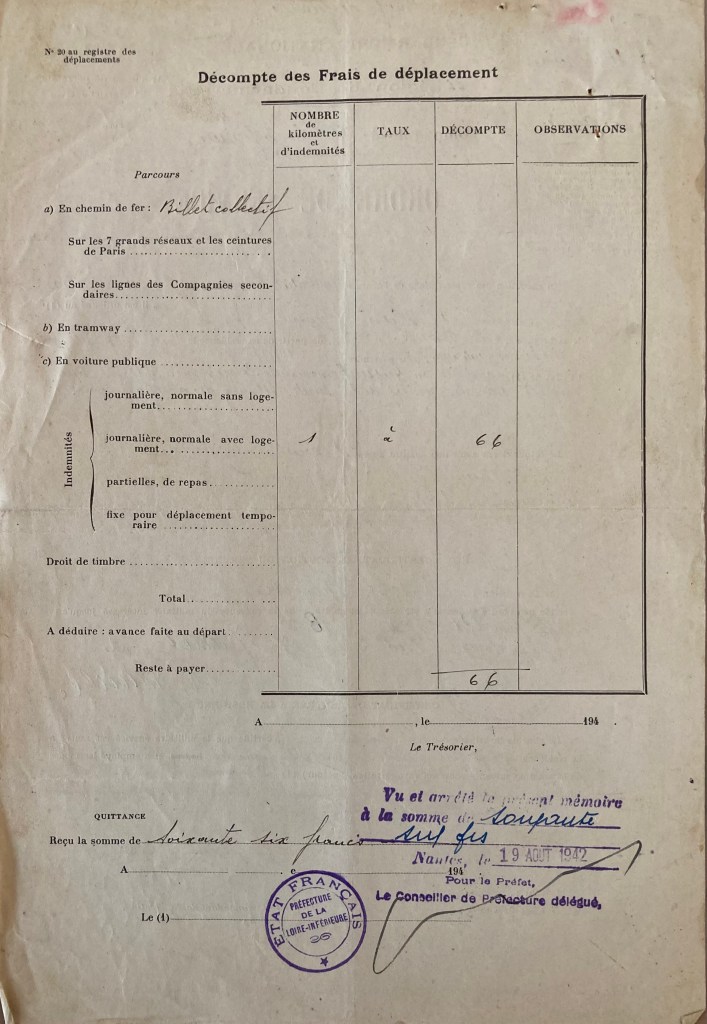 Nº 20 au registre des
déplacements
Décompte des Frais de déplacement
NOMBRE
de
kilomètres
et
d'indemnités
TAUX
DÉCOMPTE
OBSERVATIONS
Parcours
a) En chemin de fer : Billet collectif
Sur les 7 grands réseaux et les ceintures
de Paris
Sur les lignes des Compagnies secon-
daires
b) En tramway
c) En voiture publique
Indemnités
journalière, normale sans loge-
ment
journalière, normale avec loge-
ment 1 à 66
partielles, de repas
fixe pour déplacement tempo-
raire
Droit de timbre
Total
A déduire : avance faite au départ
Reste à payer 66
A , le 194 .
Le Trésorier,
QUITTANCE
Reçu la somme de soixante six francs
A 194
Le (1)
Vu et arrêté le présent mémoire
à la somme de soixante
six frs
Nantes, le 19 AOUT 1942
Pour le Préfet,
Le Conseiller de Préfecture délégué,
ETAT FRANÇAIS
PRÉFECTURE
DE LA
LOIRE-INFÉRIEURE